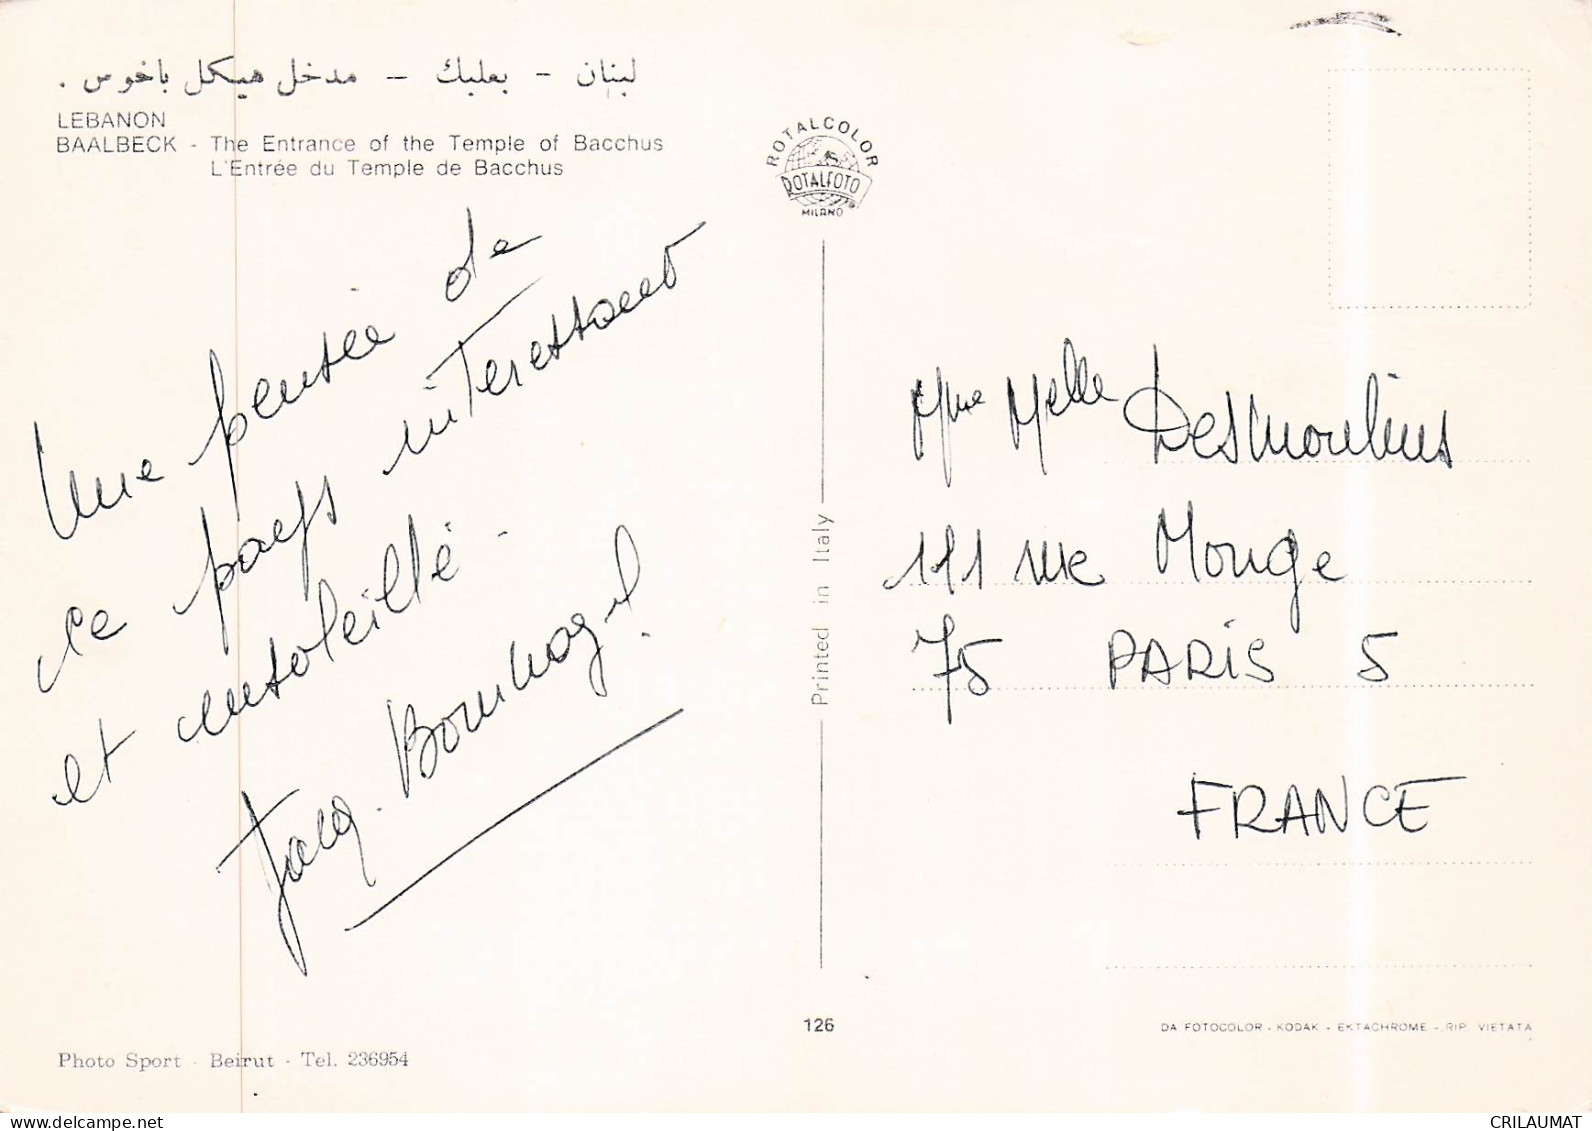 لبنان - بعلبك - مدخل هيكل باخوس .
LEBANON
BAALBECK - The Entrance of the Temple of Bacchus
L'Entrée du Temple de Bacchus
Une pensée de
ce pays intéressant
et ensoleillé.
Jacq.
ROTALCOLOR
ROTALFOTO
MILANO
Printed in Italy
Mme Melle Desmoulins
111 rue Monge
75 PARIS 5
FRANCE
126
DA FOTOCOLOR - KODAK - EKTACHROME - RIP. VIETATA
Photo Sport - Beirut - Tel. 236954
CRILAUMAT